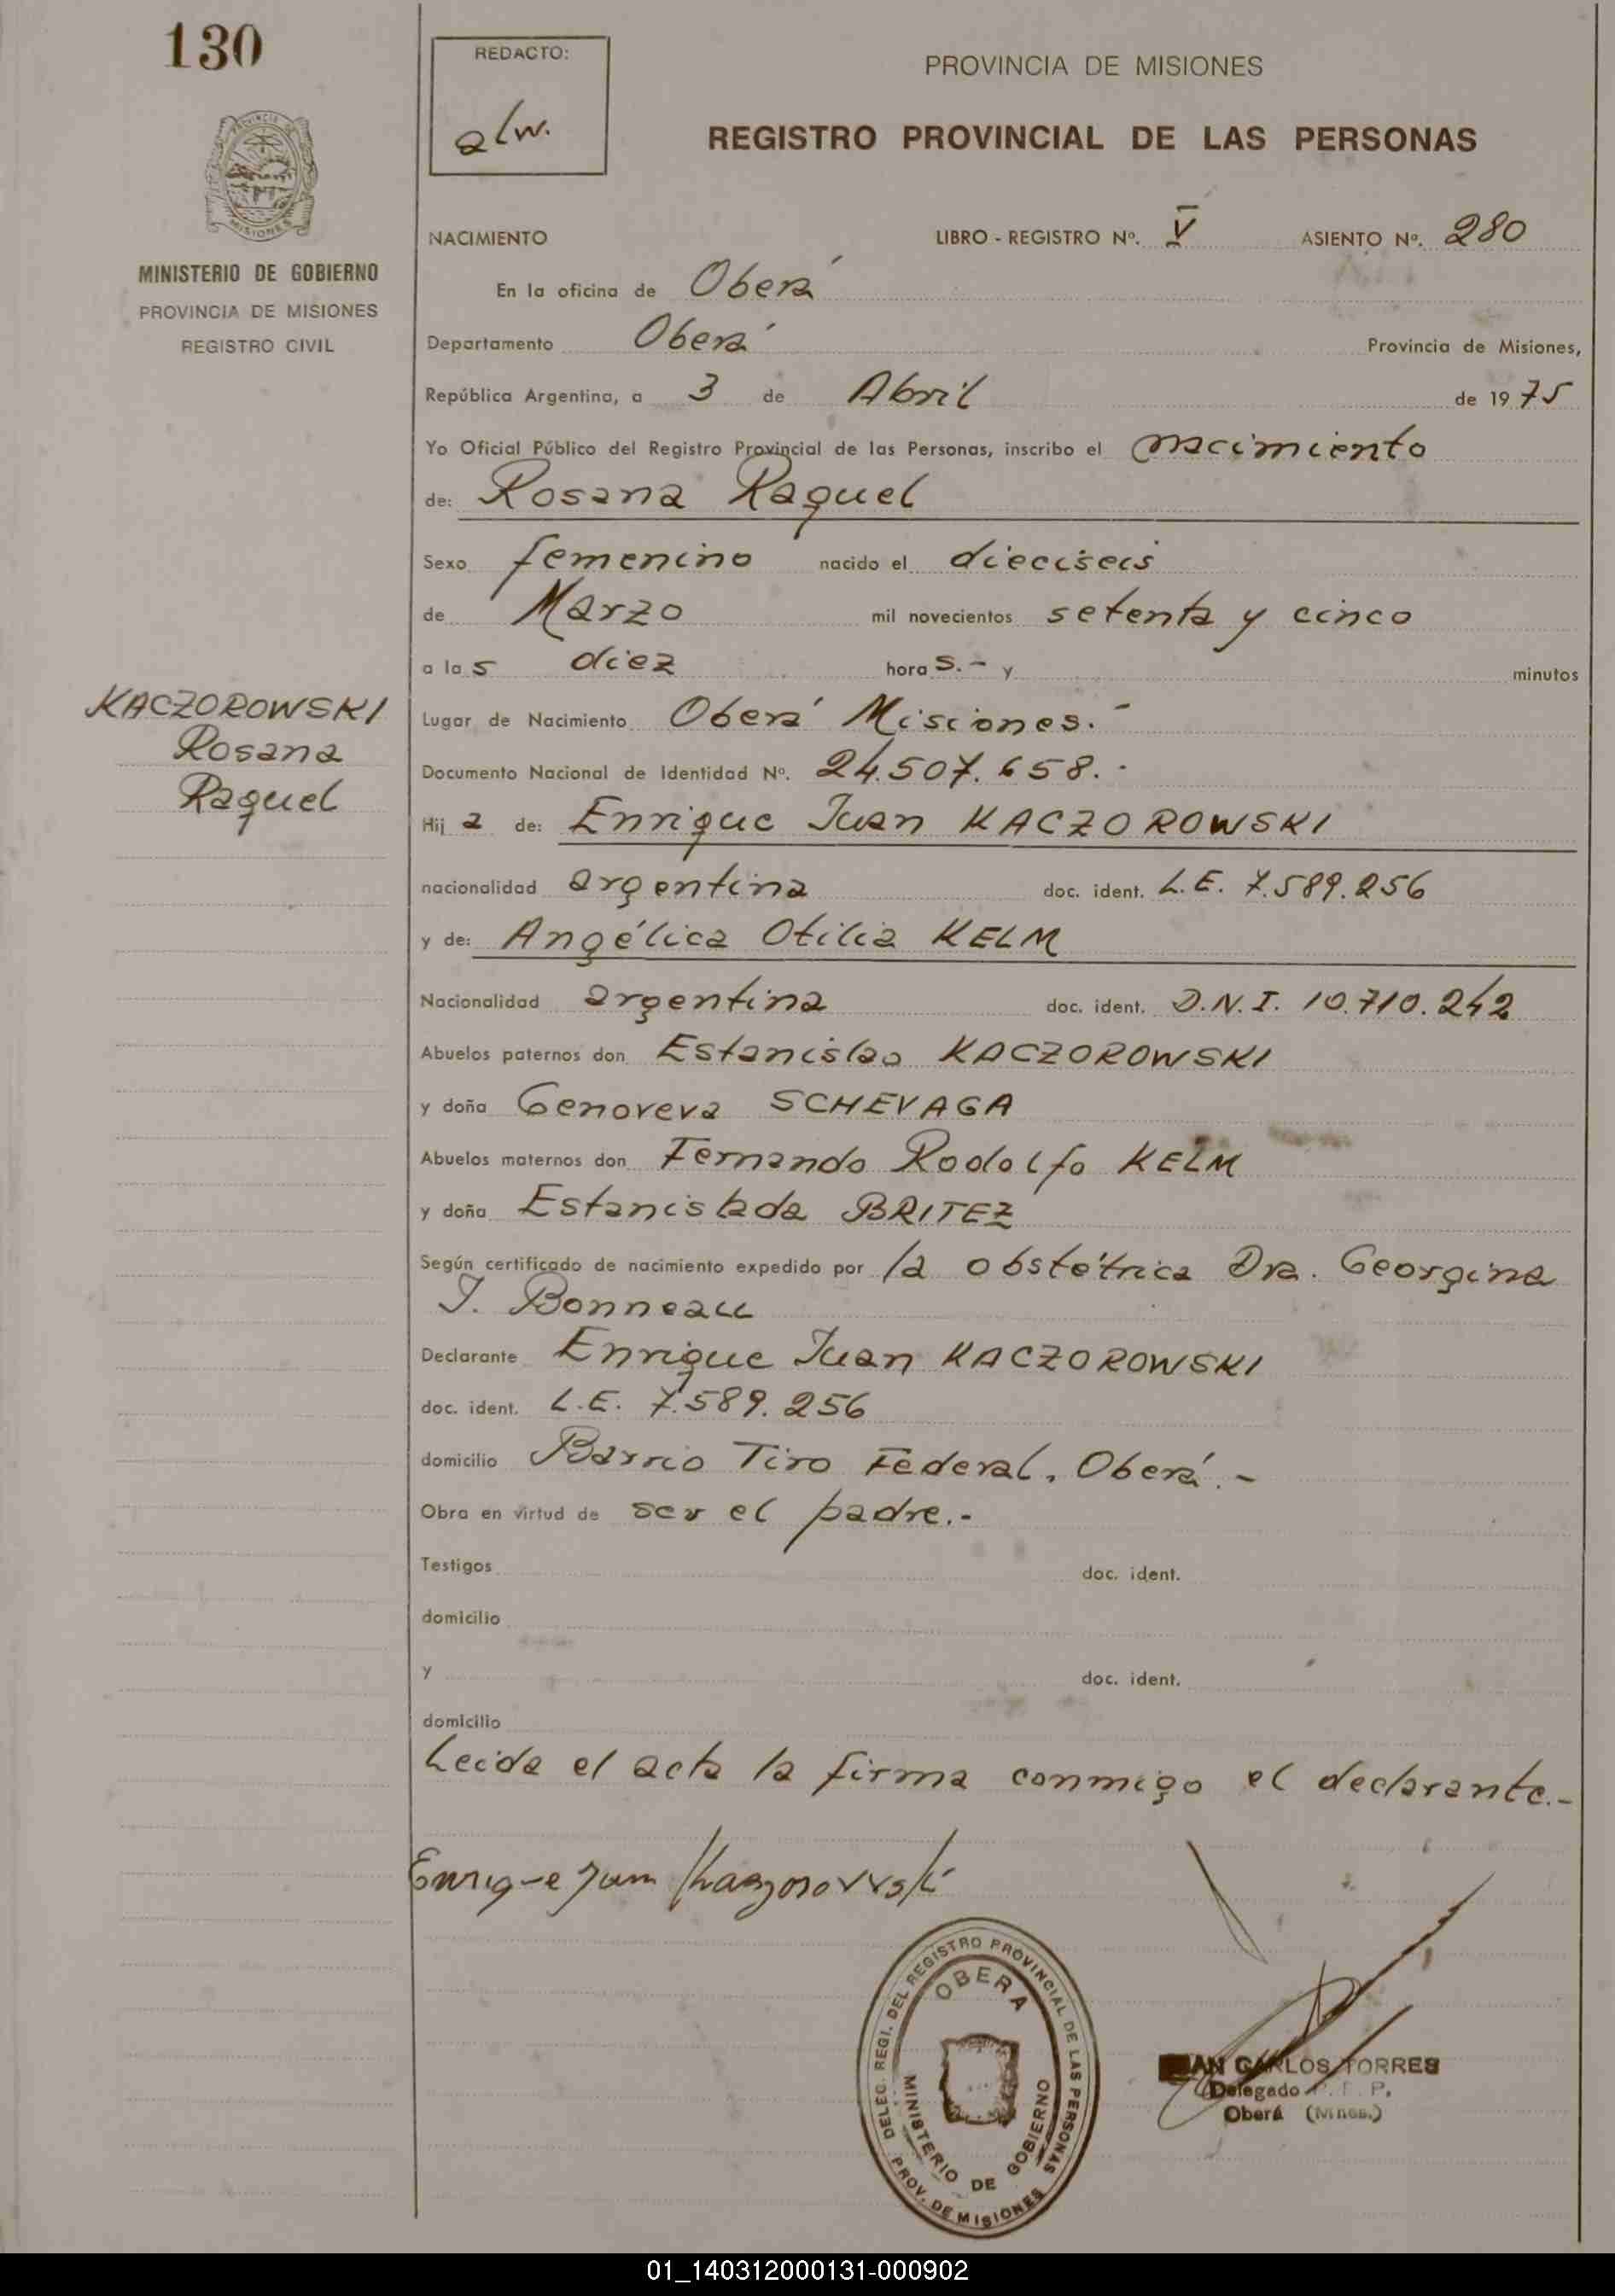 130
REDACTO:
alw.
PROVINCIA DE MISIONES
REGISTRO PROVINCIAL DE LAS PERSONAS
MINISTERIO DE GOBIERNO
PROVINCIA DE MISIONES
REGISTRO CIVIL
NACIMIENTO LIBRO - REGISTRO Nº. V ASIENTO Nº. 280
En la oficina de Oberá
Departamento Oberá Provincia de Misiones,
República Argentina, a 3 de Abril de 1975
Yo Oficial Público del Registro Provincial de las Personas, inscribo el nacimiento
de: Rosana Raquel
Sexo femenino nacido el dieciseis
de Marzo mil novecientos setenta y cinco
a las diez horas.- y minutos
KACZOROWSKI
Rosana
Raquel
Lugar de Nacimiento Oberá Misiones.-
Documento Nacional de Identidad Nº. 24.507.658.-
Hija de: Enrique Juan KACZOROWSKI
nacionalidad argentina doc. ident. L.E. 7.589.256
y de: Angélica Otilia KELM
Nacionalidad argentina doc. ident. D.N.I. 10.710.242
Abuelos paternos don Estanislao KACZOROWSKI
y doña Genoveva SCHEVAGA
Abuelos maternos don Fernando Rodolfo KELM
y doña Estanislada BRITEZ
Según certificado de nacimiento expedido por la obstétrica Dra. Georgina
J. Bonneau
Declarante Enrique Juan KACZOROWSKI
doc. ident. L.E. 7.589.256
domicilio Barrio Tiro Federal, Oberá.-
Obra en virtud de ser el padre.-
Testigos doc. ident.
domicilio
y doc. ident.
domicilio
Leida el acta la firma conmigo el declarante.-
Enrique Juan Kaczorowski
DELEG. REGI. DEL REGISTRO PROVINCIAL DE LAS PERSONAS
OBERA
MINISTERIO DE GOBIERNO
PROV. DE MISIONES
AN CARLOS TORRES
Delegado
Oberá (Mnes.)
01_140312000131-000902